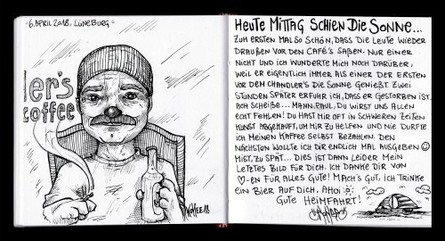 6. APRIL 2018, LÜNEBURG
ler's
coffee
WOLEE18
HEUTE MITTAG SCHIEN DIE SONNE...
ZUM ERSTEN MAL SO SCHÖN, DASS DIE LEUTE WIEDER
DRAUßEN VOR DEN CAFÉ'S SAßEN. NUR EINER
NICHT UND ICH WUNDERTE MICH NOCH DARÜBER,
WEIL ER EIGENTLICH IMMER ALS EINER DER ERSTEN
VOR DEN CHANDLER'S DIE SONNE GENIEßT. ZWEI
STUNDEN SPÄTER ERFUHR ICH, DASS ER GESTORBEN IST.
ACH SCHEIßE... MANN, PAUL, DU WIRST UNS ALLEN
ECHT FEHLEN! DU HAST MIR OFT IN SCHWEREN ZEITEN
KUNST ABGEKAUFT, UM MIR ZU HELFEN UND NIE DURFTE
ICH MEINEN KAFFEE SELBST BEZAHLEN. DEN
NÄCHSTEN WOLLTE ICH DIR ENDLICH MAL AUSGEBEN
MIST, ZU SPÄT... DIES IST DANN LEIDER MEIN
LETZTES BILD FÜR DICH. ICH DANKE DIR VON
♡-EN FÜR ALLES GUTE! MACH'S GUT, ICH TRINKE
EIN BIER AUF DICH, AHOI
GUTE HEIMFAHRT!